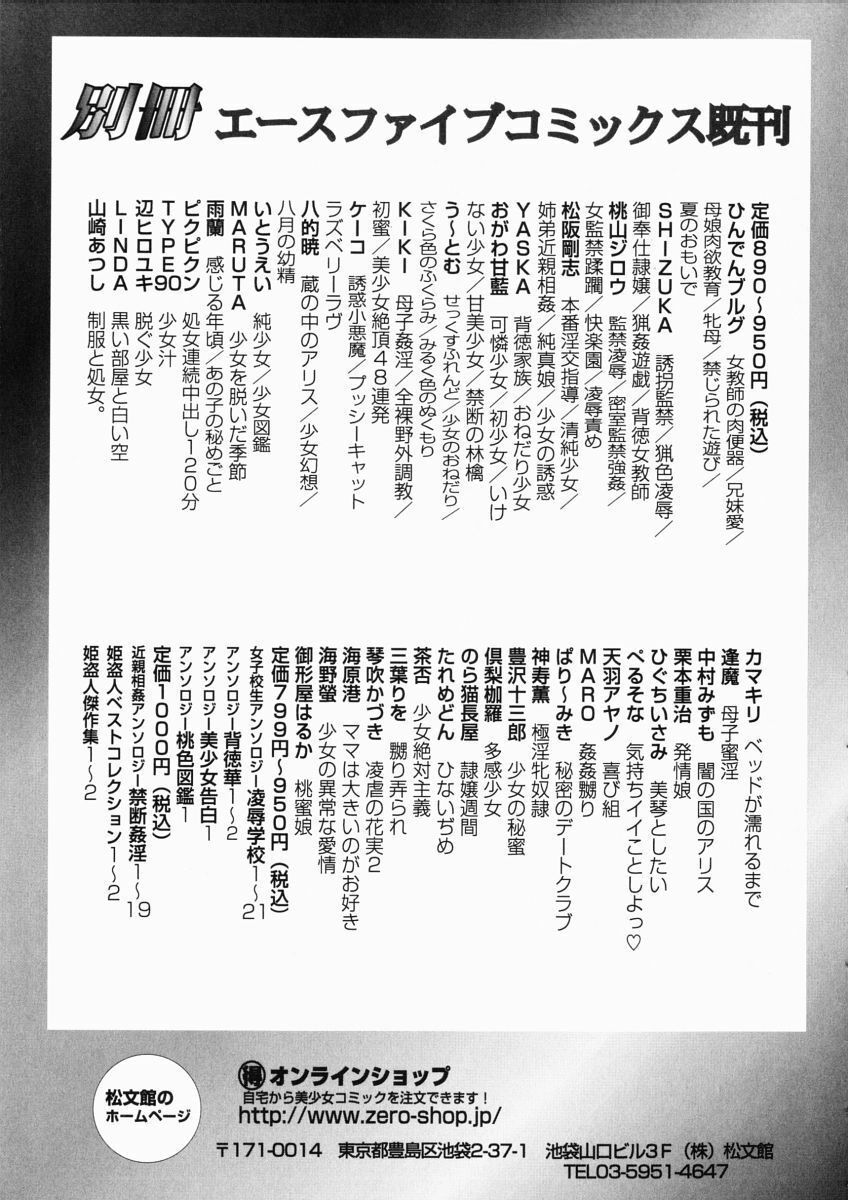 別冊 エースファイブコミックス既刊
定価890～950円（税込）
ひんでんブルグ 女教師の肉便器／兄妹愛／
母娘肉欲教育／牝母／禁じられた遊び／
夏のおもいで
SHIZUKA 誘拐監禁／猟色凌辱／
御奉仕隷嬢／猟姦遊戯／背徳女教師
桃山ジロウ 監禁凌辱／密室監禁強姦／
女監禁蹂躙／快楽園／凌辱責め
松阪剛志 本番淫交指導／清純少女／
姉弟近親相姦／純真娘／少女の誘惑
YASKA 背徳家族／おねだり少女
おがわ甘藍 可憐少女／初少女／いけ
ない少女／甘美少女／禁断の林檎
う～とむ せっくすふれんど／少女のおねだり／
さくら色のふくらみ／みるく色のぬくもり
KIKI 母子姦淫／全裸野外調教／
初蜜／美少女絶頂48連発
ケーコ 誘惑小悪魔／プッシーキャット
ラズベリーラヴ
八的暁 蔵の中のアリス／少女幻想／
八月の幼精
いとうえい 純少女／少女図鑑
MARUTA 少女を脱いだ季節
雨蘭 感じる年頃／あの子の秘めごと
ピクピクン 処女連続中出し120分
TYPE90 少女汁
辺ヒロユキ 脱ぐ少女
LINDA 黒い部屋と白い空
山崎あつし 制服と処女。
カマキリ ベッドが濡れるまで
逢魔 母子蜜淫
中村みずも 闇の国のアリス
栗本重治 発情娘
ひぐちいさみ 美琴としたい
ぺるそな 気持ちイイことしよっ♡
天羽アヤノ 喜び組
MARO 姦姦嬲り
ぱり～みき 秘密のデートクラブ
神寿薫 極淫牝奴隷
豊沢十三郎 少女の秘蜜
倶梨枷羅 多感少女
のら猫長屋 隷嬢週間
たれめどん ひないぢめ
茶否 少女絶対主義
三葉りを 嬲り弄られ
琴吹かづき 凌虐の花実2
海原港 ママは大きいのがお好き
海野螢 少女の異常な愛情
御形屋はるか 桃蜜娘
定価799円～950円（税込）
女子校生アンソロジー凌辱学校1～21
アンソロジー背徳華1～2
アンソロジー美少女告白1
アンソロジー桃色図鑑1
定価1000円（税込）
近親相姦アンソロジー禁断姦淫1～19
姫盗人ベストコレクション1～2
姫盗人傑作集1～2
松文館の
ホームページ
得オンラインショップ
自宅から美少女コミックを注文できます！
http://www.zero-shop.jp/
〒171-0014 東京都豊島区池袋2-37-1 池袋山口ビル3F（株）松文館
TEL03-5951-4647